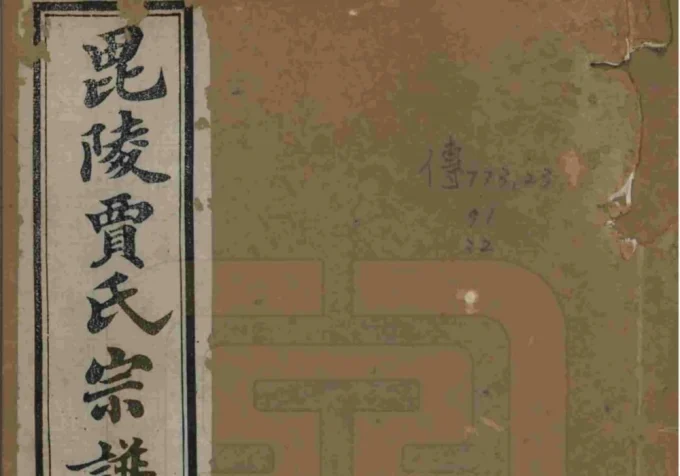 毘陵賈氏宗譜
傳773.23
91
22